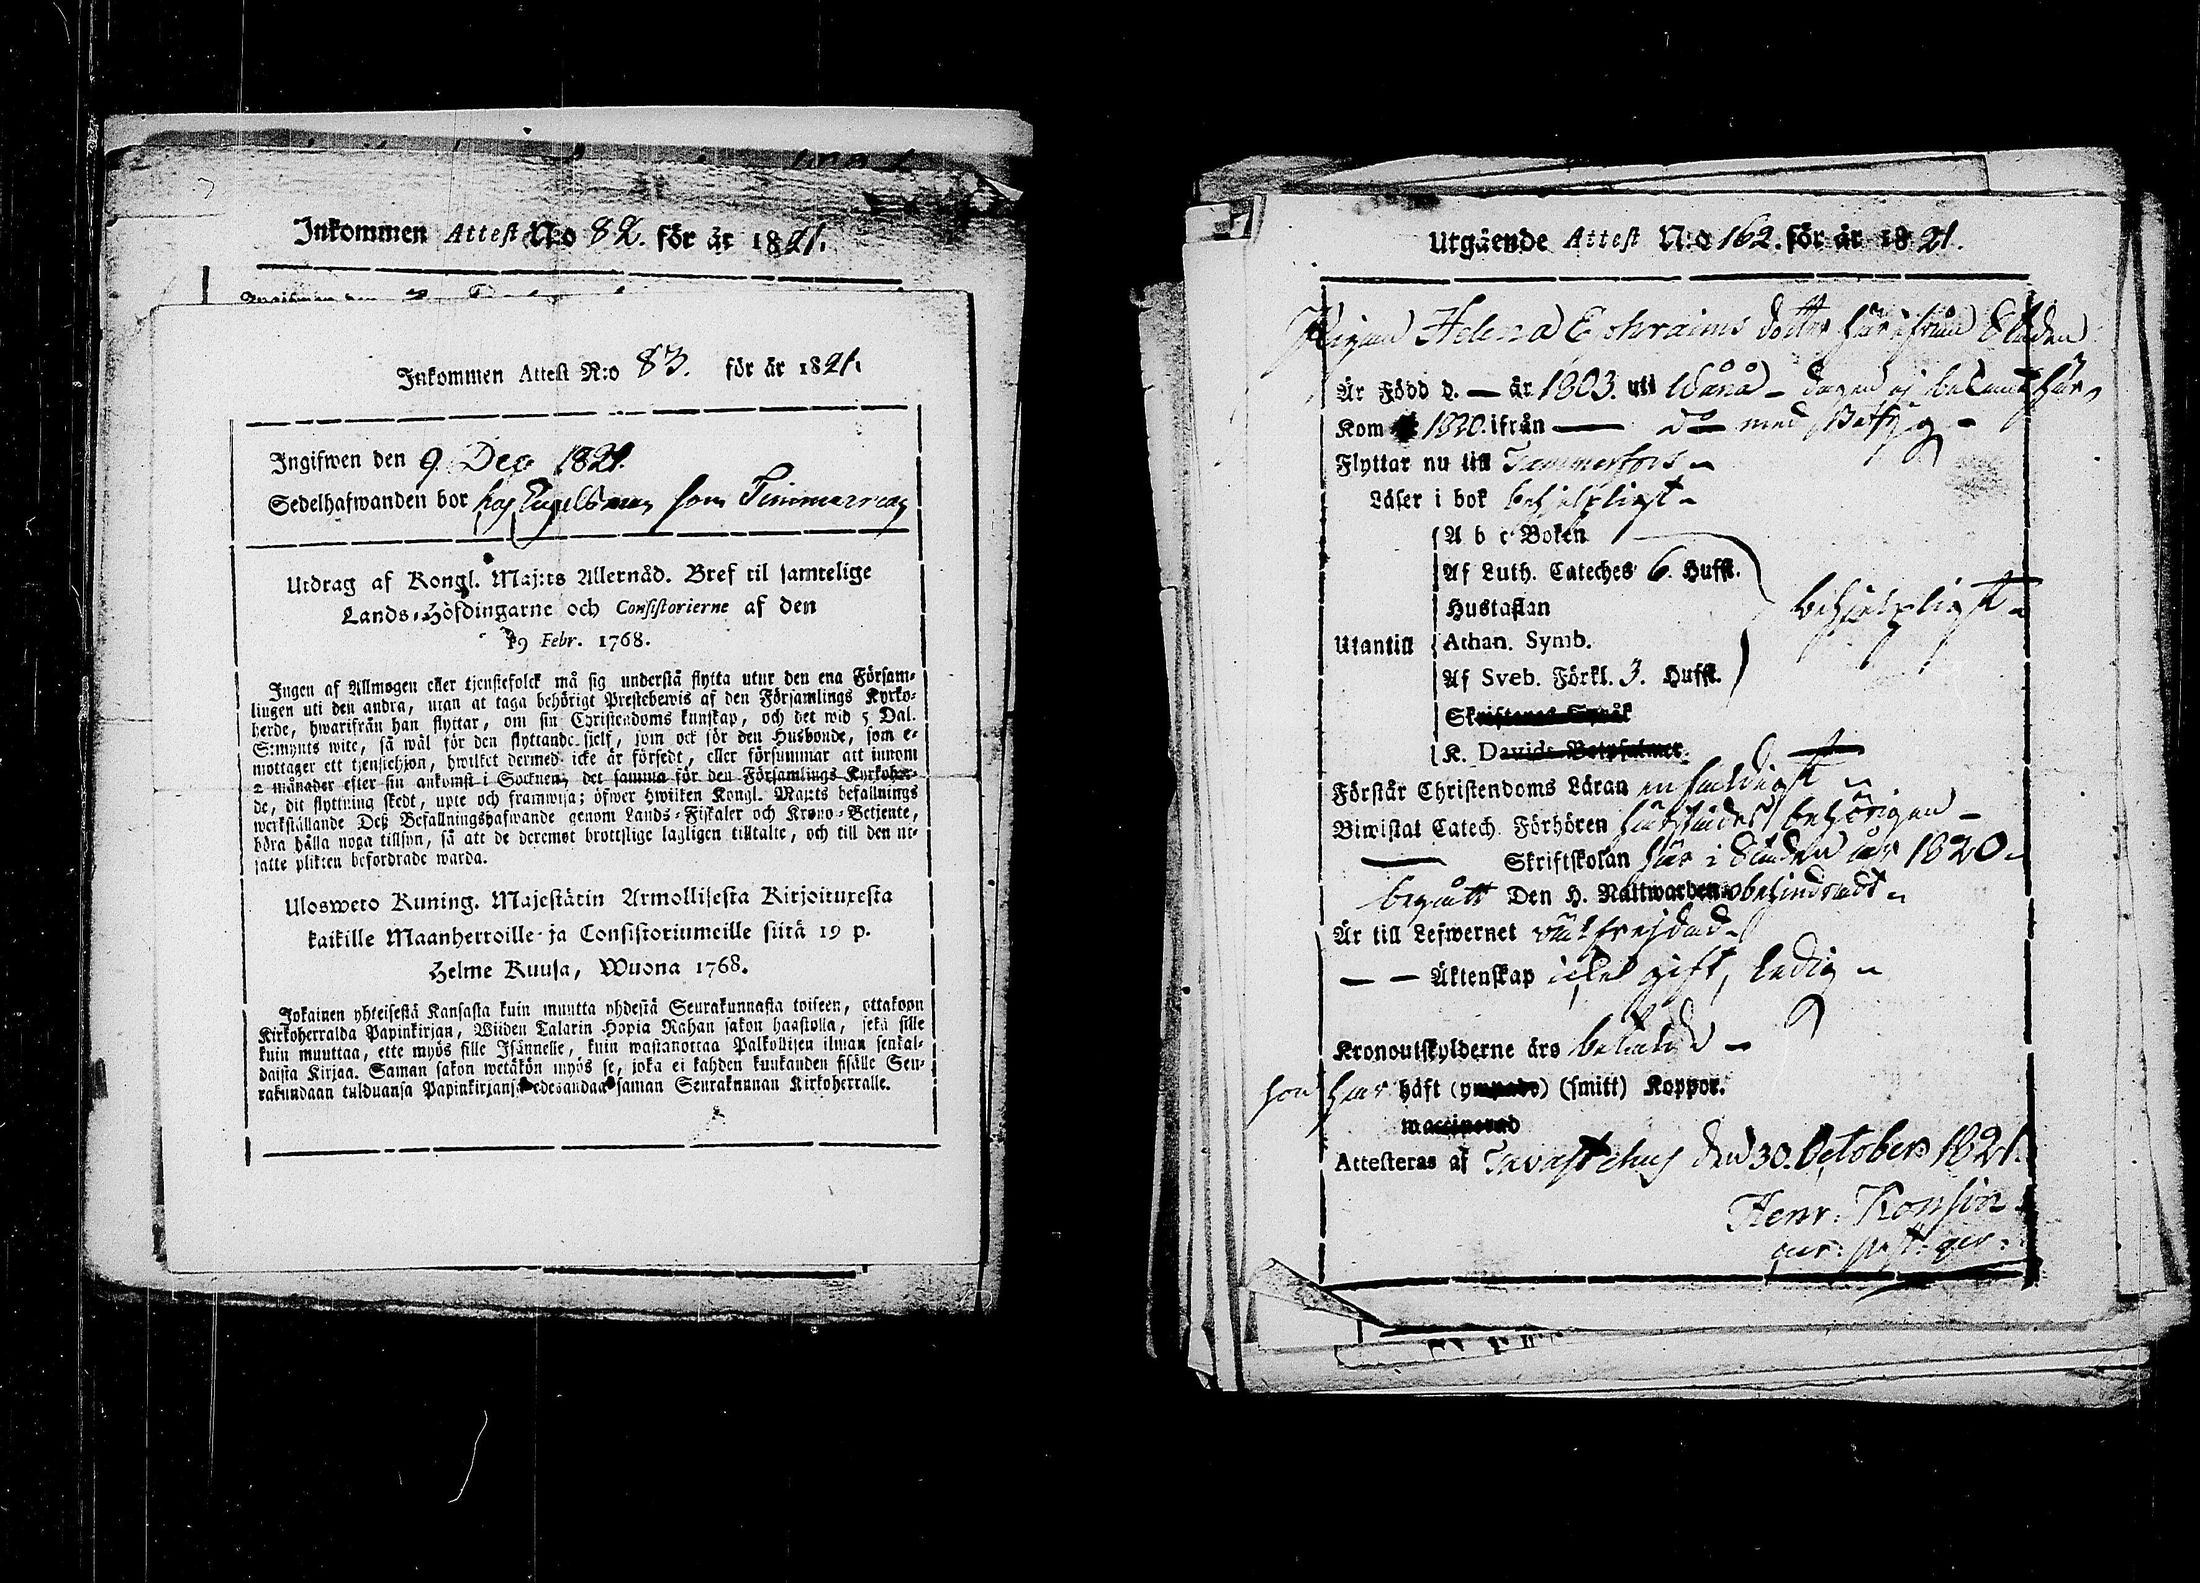 Inkommen Attest N:o 82. för år 1821.
Inkommen Attest N:o 83. för år 1821.
Ingifwen den 9 Dec 1821.
Sedelhafwanden bor hos Engelsman som Timmerman
Utdrag af Kongl. Maj:ts Allernåd. Bref til samtelige
Lands-Höfdingarne och Consistorierne af den
19 Febr. 1768.
Ingen af Allmogen eller tjenstefolck må sig understå flytta utur den ena Försam-
lingen uti den andra, utan at taga behörigt Prestebewis af den Församlings Kyrko-
herde, hwarifrån han flyttar, om sin Christendoms kunskap, och det wid 5 Dal.
S:mynts wite, så wäl för den flyttande sielf, som ock för den Husbonde, som e-
mottager ett tjenstehjon, hwilket dermed icke är försedt, eller försummar att innom
2 månader efter sin ankomst i Socknen, det samma för den Församlings Kyrkoher-
de, dit flyttning skedt, upte och framwisa; öfwer hwilken Kongl. Maj:ts befallnings
werkställande Deß Befallningshafwande genom Lands-Fiskaler och Krono-Betjente,
böra hålla noga tillsyn, så att de deremot brottslige lagligen tilltalte, och till den ut-
satte plikten befordrade warda.
Ulosweto Kuning. Majestätin Armollisesta Kirjoituxesta
kaikille Maanherroille ja Consistoriumeille siitä 19 p.
Helme Kuusa, Wuona 1768.
Jokainen yhteisestä Kansasta kuin muutta yhdestä Seurakunnasta toiseen, ottakoon
Kirkoherralda Papinkirjan, Wiiden Talarin Hopia Rahan sakon haastolla, sekä sille
kuin muuttaa, ette myös sille Isännelle, kuin wastanottaa Palkollisen ilman senkal-
daista Kirjaa. Saman sakon wetäkön myös se, joka ei kahden kuukauden sisälle Seu-
rakundaan tulduansa Papinkirjansa edesandaa saman Seurakunnan Kirkoherralle.
Utgående Attest N:o 162. för år 1821.
Pigan Helena Ephraims dotter härifrån Staden
Är Född d. — år 1803. uti Wånå — dagen ej bekant här
Kom 1820. ifrån — do med Betyg —
Flyttar nu till Tammerfors
Läser i bok behjelpligt
A b c Boken
Af Luth. Cateches 6. Huffst.
Hustaflan
behjelpligt
Utantill Athan. Symb.
Af Sveb. Förkl. 3. Huffst.
Skriftenes Språk
K. Davids Botpsalmer.
Förstår Christendoms Läran enfaldigt
Biwistat Catech. Förhören härstädes behörigen —
— Skriftskolan här i Staden år 1820
begått Den H. Nattwarden obehindradt
Är till Lefwernet wälfrejdad
— — Äktenskap icke gift, ledig
Kronoutskylderne äro betalde —
hon har haft (ympade) (smitt) Koppor.
waccinerad
Attesteras af Tavastehus den 30. October 1821.
Henr. Konsin